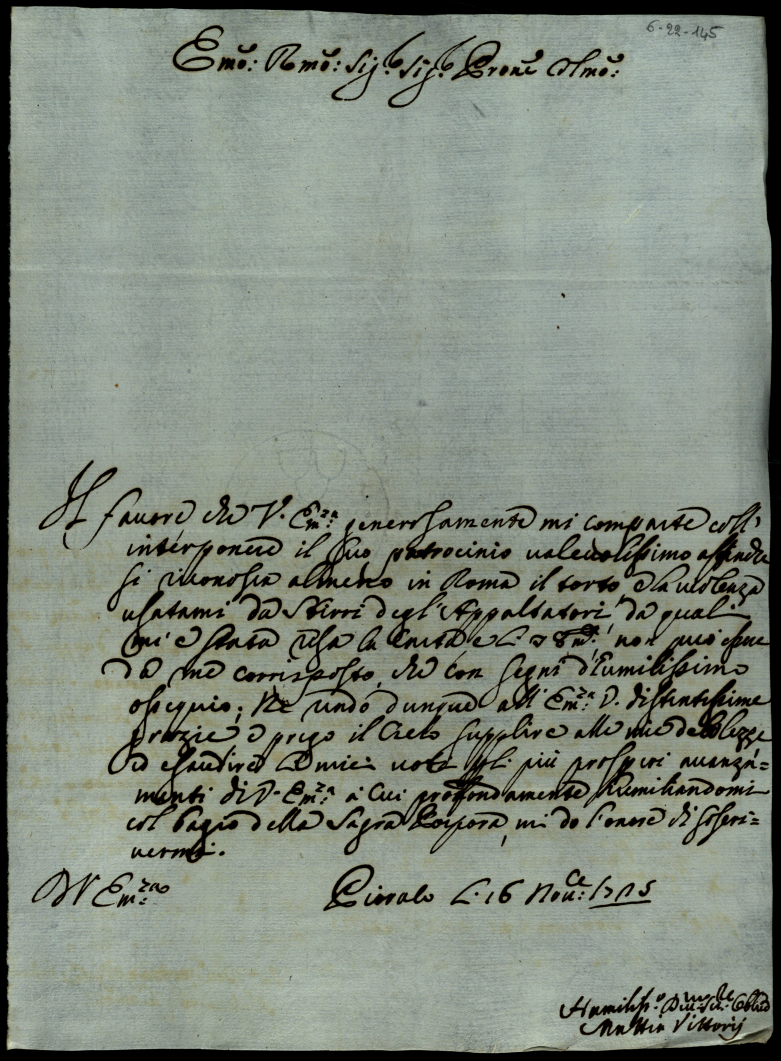 6-22-145
Emo: Rmo: Sigr. Sigr. Prone Colmo:
Il favore che V. Emza: generosamente mi comparte coll'
interponere il suo patrocinio valevolissimo affinche
si riconosca almeno in Roma il torto, e la violenza
usatami da Sbirri degl'Appaltatori, da quali
mi è stata
non può essere
da me corrisposto, che con segni d'humilissimo
ossequio; Ne rendo dunque all'Emza: V. distintissime
grazie e prego il Cielo supplire alle mie debolezze
ed esaudire i miei voti gli più prosperi avanza=
menti di V. Emza: a cui profondamente humiliandomi
col bagio della Sagra Porpora, mi do l'onore di soscri=
vermi.
D V Emza
Piovalo Li 16 Nove: 1715
Humilissо: Divmo: Se: Obblmo
Mattia Vittorij